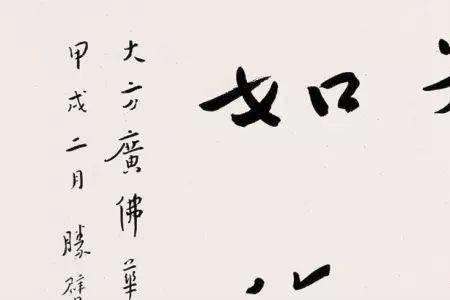 如
大方廣佛華
甲戌二月 勝